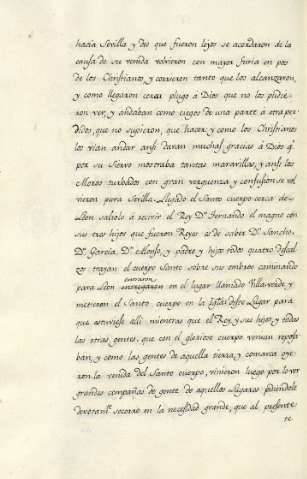 hacia Sevilla y des que fueron lejos se acordaron de la
causa de su venida volvieron con mayor furia en pos
de los Christianos, y corrieron tanto que los alcanzaron,
y como llegaron cerca plugo à Dios que no los pudie-
ron ver, y andaban como ciegos de una parte à otra per-
didos, que no supieron, que hacer, y como los Christianos
los vian andar ansi davan muchas gracias à Dios q.e
por su Siervo mostraba tantas maravillas, y ansi los
Moros turbados con gran verguenza y confusion se vol
vieron para Sevilla. Llegado el Santo cuerpo cerca de
Leon saliolo à recivir el Rey D.n Fernando el magno con
sus tres hijos que fueron Reyes es de saber D.n Sancho,
D.n Garcia, D.n Alonso, y padre y hijos todos quatro descal-
zos trayan el cuerpo Santo sobre sus ombros caminando
para Leon entraron en el lugar llamado Villaverde, y
metieron el Santo cuerpo en la Iglesia desse Lugar para
que estuviese alli mientras que el Rey, y sus hijos, y todas
las otras gentes, que con el glorioso cuerpo venian reposa
ban, y como las gentes de aquella tierra, y comarca oye
ron la venida del Santo cuerpo, vinieron luego por lo ver
grandes compañas de gente de aquellos Lugares pidiendole
devotam.te socorro en la necesidad grande, que al presente